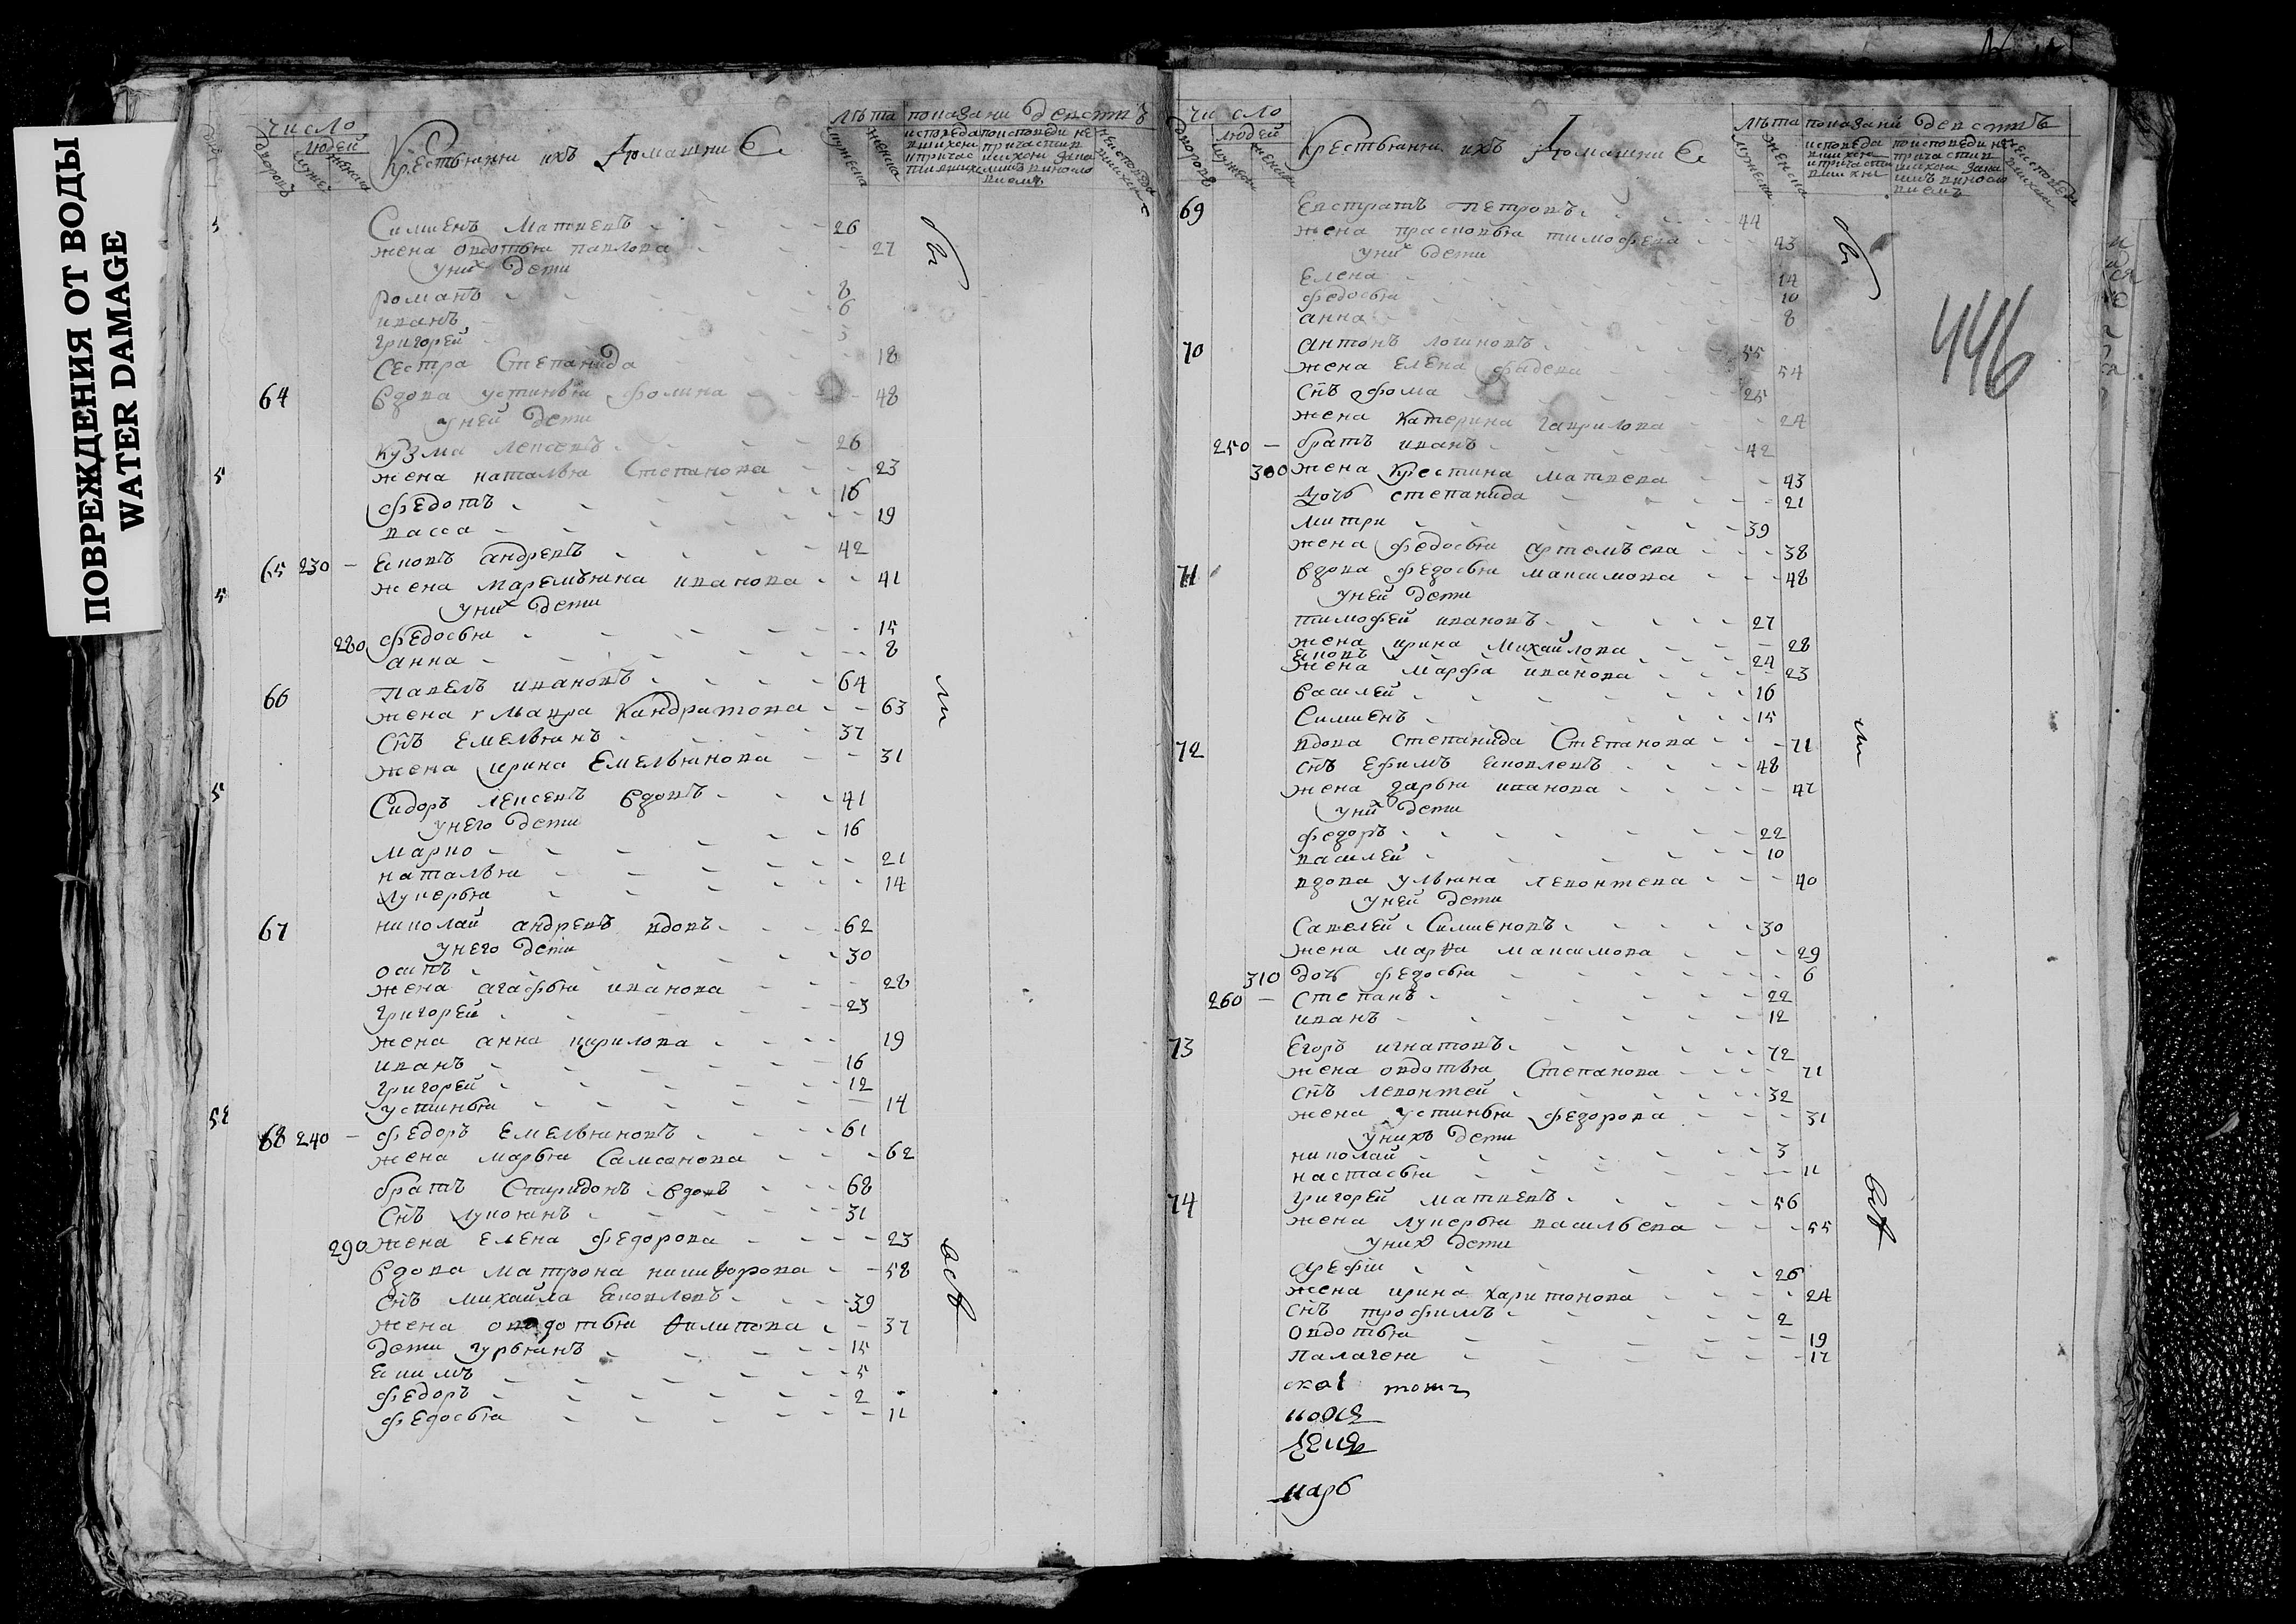 ПОВРЕЖДЕНИЯ ОТ ВОДЫ
WATER DAMAGE
число
людей
Крестьяня ихъ домашние
лѣта показани действъ
Симиенъ Матвевъ 26
жена овдотья павлова 27
уних дети
романъ 8
иванъ 6
григорей 3
Сестра Степанида 18
64 вдова устинья фомина 48
уней дети
кузма лексевъ 26
жена наталья Степанова 23
федотъ 16
васса 19
65 230 — яковъ андревъ 42
жена маремьяна иванова 41
уних дети
280 федосья 15
анна 8
66 павелъ ивановъ 64
жена мавра кандратова 63
снъ емельянъ 37
жена ирина Емельянова 31
Сидоръ лексевъ вдовъ 41
унего дети
марко 16
наталья 21
лукерья 14
67 николай андревъ вдовъ 62
унего дети
осипъ 30
жена агафья иванова 28
григорей 23
жена анна кирилова 19
иванъ 16
григорей 12
устинья 14
68 240 — федоръ емельяновъ 61
жена марья Самсонова 62
братъ Спиридонъ вдовъ 68
Снъ лукоянъ 31
290 жена елена федорова 23
вдова матрона никифорова 58
снъ михайла яковлевъ 39
жена овдотья филипова 37
дети гурьянъ 15
якимъ 5
федоръ 2
федосья 11
число
людей
Крестьяня ихъ домашние
лѣта показани действъ
446
69 Евстратъ петровъ 44
жена прасковья тимофева 43
уних дети
Елена 14
федосья 10
анна 8
70 антонъ логиновъ 55
жена елена фадева 54
снъ фома 25
жена катерина гаврилова 24
250 — братъ иванъ 42
300 жена крестина матвева 43
дочь степанида 21
митри 39
жена федосья артемьева 38
71 вдова федосья максимова 48
уней дети
тимофей ивановъ 27
жена ирина михайлова 28
яковъ 24
жена марфа иванова 23
василей 16
Симиенъ 15
72 вдова степанида Степанова 71
снъ ефимъ яковлевъ 48
жена дарья иванова 47
уних дети
федоръ 22
василей 10
вдова ульяна левонтева 40
уней дети
Савелей Симиеновъ 30
жена марфа максимова 29
310 дочь федосья 6
260 — степанъ 22
иванъ 12
73 Егоръ игнатовъ 72
жена овдотья Степанова 71
снъ левонтей 32
жена устинья федорова 31
унихъ дети
николай 3
настасья 11
74 григорей матвевъ 56
жена лукерья васильева 55
уних дети
арефи 26
жена ирина харитонова 24
снъ трофимъ 2
овдотья 19
палагея 17